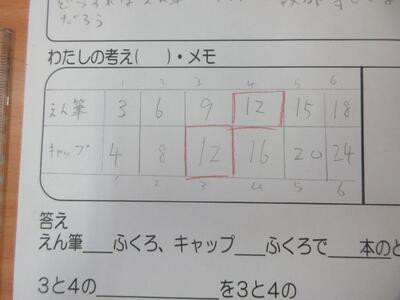 だろう
わたしの考え(　)・メモ
1 2 3 4 5 6
えん筆 3 6 9 12 15 18
キャップ 4 8 12 16 20 24
1 2 3 4 5 6
答え
えん筆___ふくろ、キャップ___ふくろで___本のと
3と4の__________を3と4の